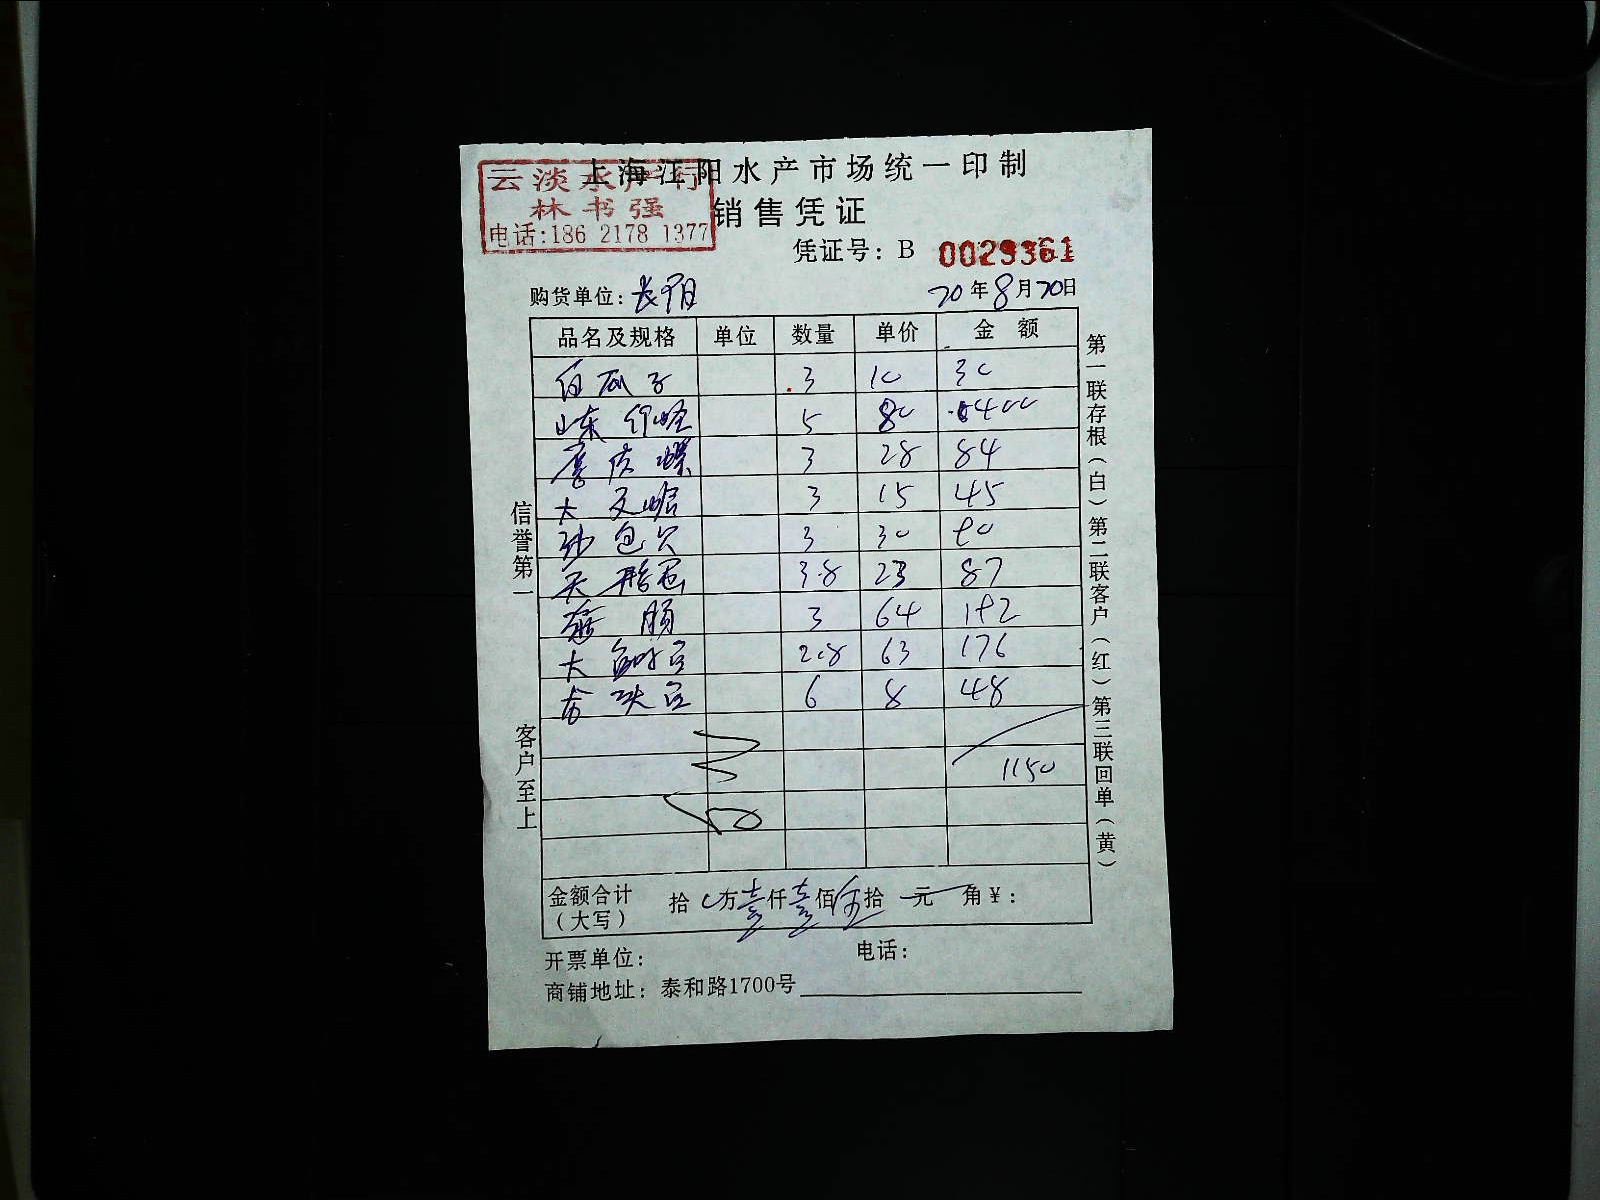 上海江阳水产市场统一印制
云淡水产行
林书强
电话:186 2178 1377
销售凭证
凭证号: B 0029361
购货单位: 长阳 20年8月20日
品名及规格 单位 数量 单价 金额
白瓜子 3 10 30
山东竹蛏 5 80 400
3 28 84
大文蛤 3 15 45
沙包 3 30 90
3.8 23 87
肠 3 64 192
大 2.8 63 176
6 8 48
1150
金额合计 拾 万壹仟壹佰伍拾 元 角¥:
(大写)
开票单位: 电话:
商铺地址: 泰和路1700号
信誉第一
客户至上
第一联存根(白)第二联客户(红)第三联回单(黄)